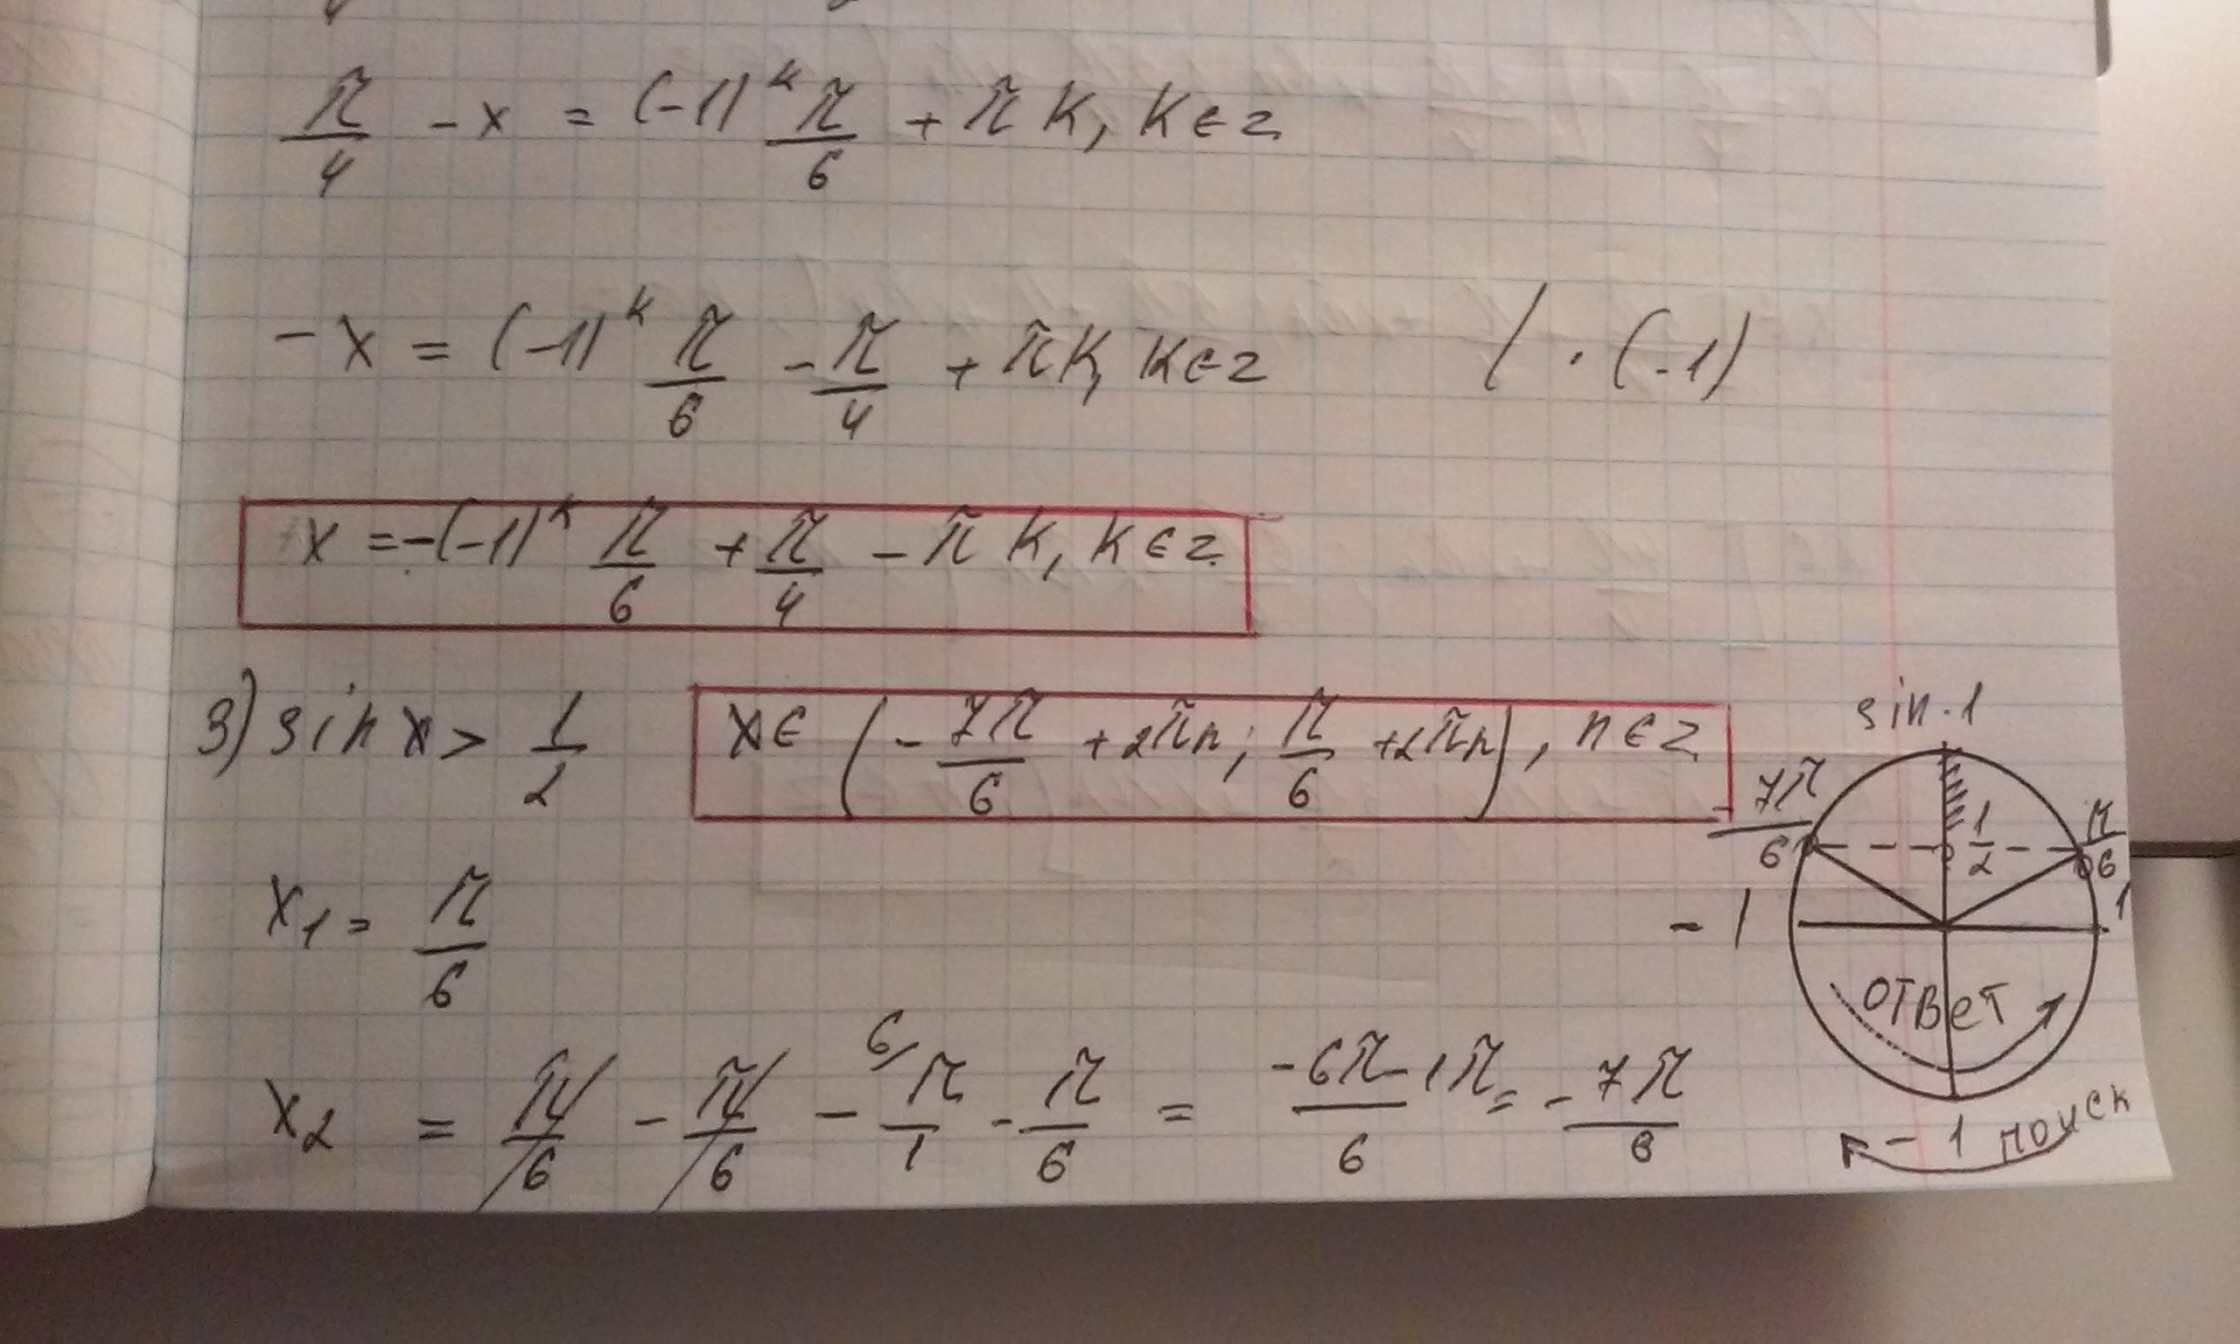 π/4 - x = (-1)^k π/6 + πk, k∈z
-x = (-1)^k π/6 - π/4 + πk, k∈z / · (-1)
x = -(-1)^k π/6 + π/4 - πk, k∈z
3) sin x > 1/2 x∈ (-7π/6 + 2πn; π/6 + 2πn), n∈z
x₁ = π/6
x₂ = π/6 - π/6 - 6/ π/1 - π/6 = (-6π - 1π)/6 = -7π/6
sin 1
-7π/6 1/2 π/6
-1 1
ответ
-1 поиск